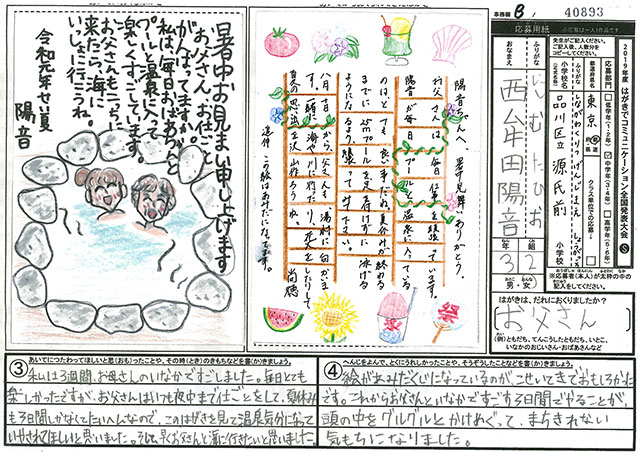 事務局 B 40893
応募用紙
※応募は一人1作品です。
2019年度 はがきでコミュニケーション全国発表大会 S
先生がご記入ください。
ご記入後、人数分を
コピーしてください。
応募部門
低学年(1・2年)
中学年(3・4年)
高学年(5・6年)
クラス単位での応募
都道府県名
東京
小学校名
ふりがな
しながわくりつげんじまえ
しょうがっこう
品川区立源氏前
小学校
ふりがな
おなまえ
西牟田陽音
3年
2組
男・女
※応募者(本人)が太枠の中の
記入をしてください。
はがきは、だれにおくりましたか?
お父さん
(例)ともだち、てんこうしたともだち、いとこ、
いなかのおじいさん・おばあさんなど
暑中お見まい申し上げます
お父さん お仕事
がんばってますか。
私は、毎日おばちゃんと
プールと温泉に入って
楽しくすごしています。
お父さんもこっちに
来たら、海に
いっしょに行こうね。
令和元年せい夏
陽音
陽音ちゃんへ 暑中見舞ありがとう。
お父さんは毎日仕事を頑張っています。
陽音が毎日プールと温泉に入っている
のは、とても良い事だね。夏休みが終わる
までに25mプールを足を着けずに泳げる
ようになるよう頑張ってみて下さい。
追伸 この絵はあみだになってます。
③
あいてにつたわってほしいと思(おも)ったことや、その時(とき)のきもちなどを書(か)きましょう。
私は3週間、お母さんのいなかですごしました。毎日とても
楽しかったですが、お父さんはいつも夜中まで仕事をして、夏休み
も3日間しかなくてたいへんなので、このはがきを見て温泉気分になって
いやされてほしいと思いました。そして、早くお父さんと海に行きたいと思いました。
④
へんじをよんで、とくにうれしかったことや、そうぞうしたことなどを書(か)きましょう。
絵があみだくじになっているのが、こせいてきでおもしろかった
です。これからお父さんといなかですごす3日間でやることが、
頭の中をグルグルとかけめぐって、まちきれない
気もちになりました。